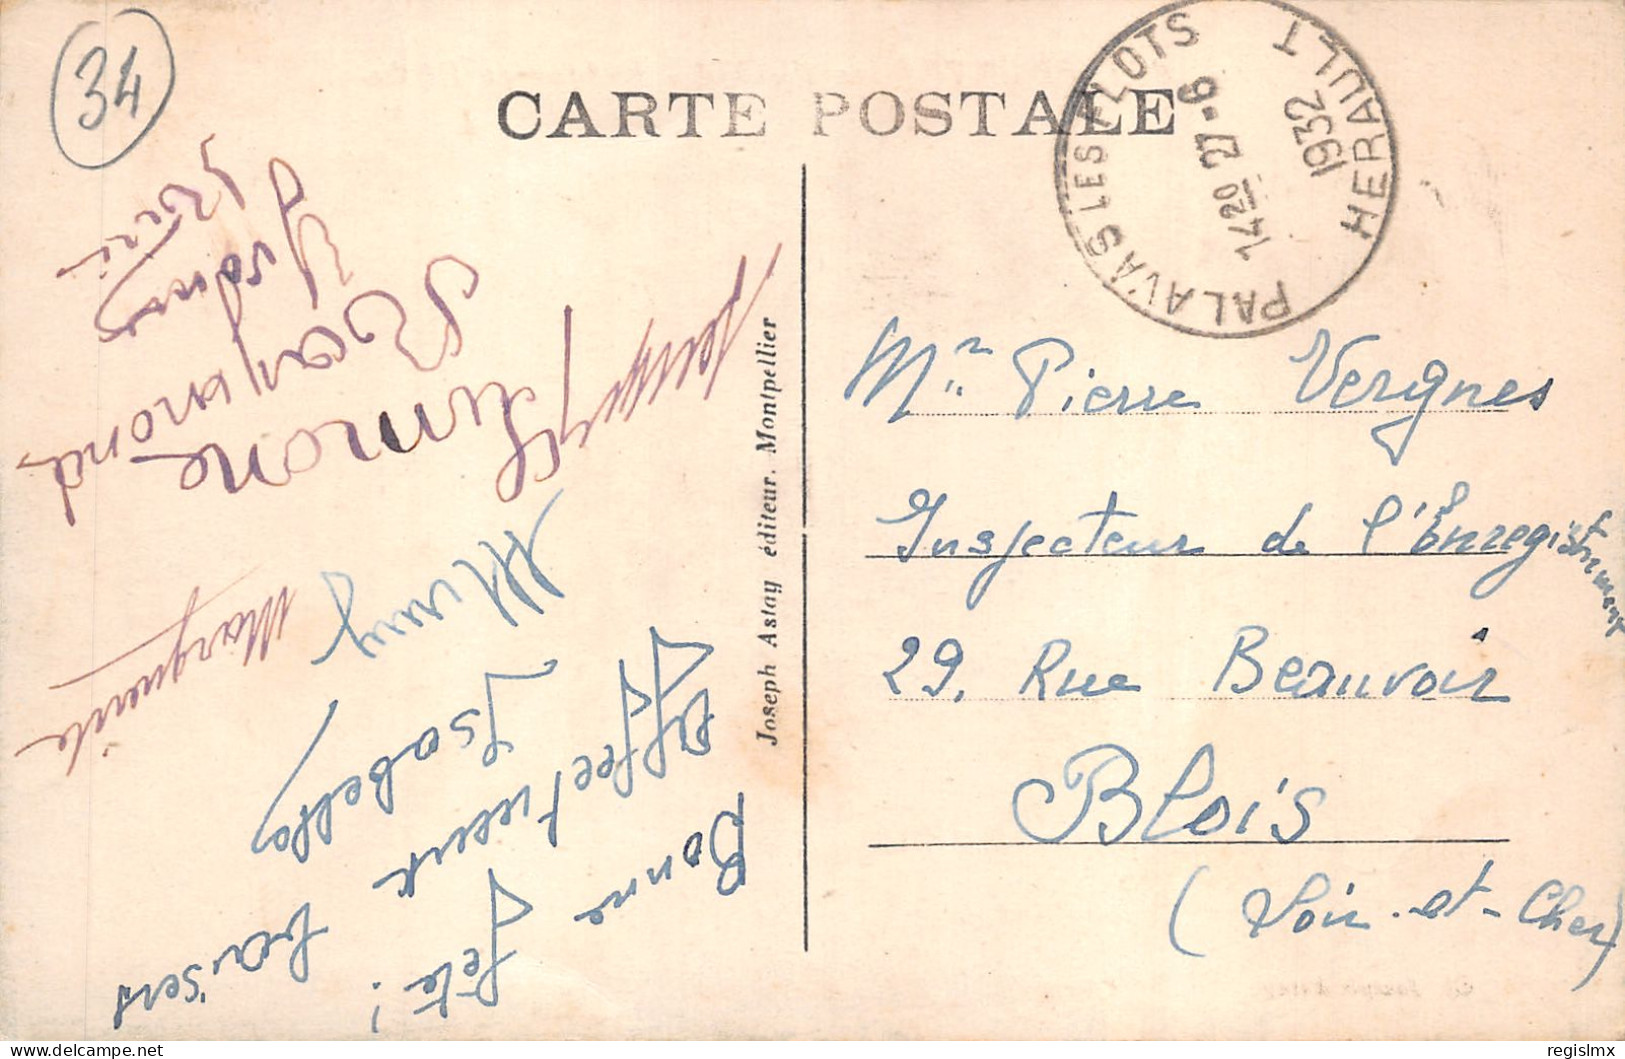 34
CARTE POSTALE
PALAVAS LES FLOTS
HERAULT
14 20 27-6
1932
Joseph Astay éditeur. Montpellier
Mr Pierre Vergnes
Inspecteur de l'Enregistrement
29, Rue Beauvoir
Blois
(Loir-et-Cher)
Bonne Fête!
Affectueux baisers
Isabelle
Marguerite
Simone
Raymond
Yvonne